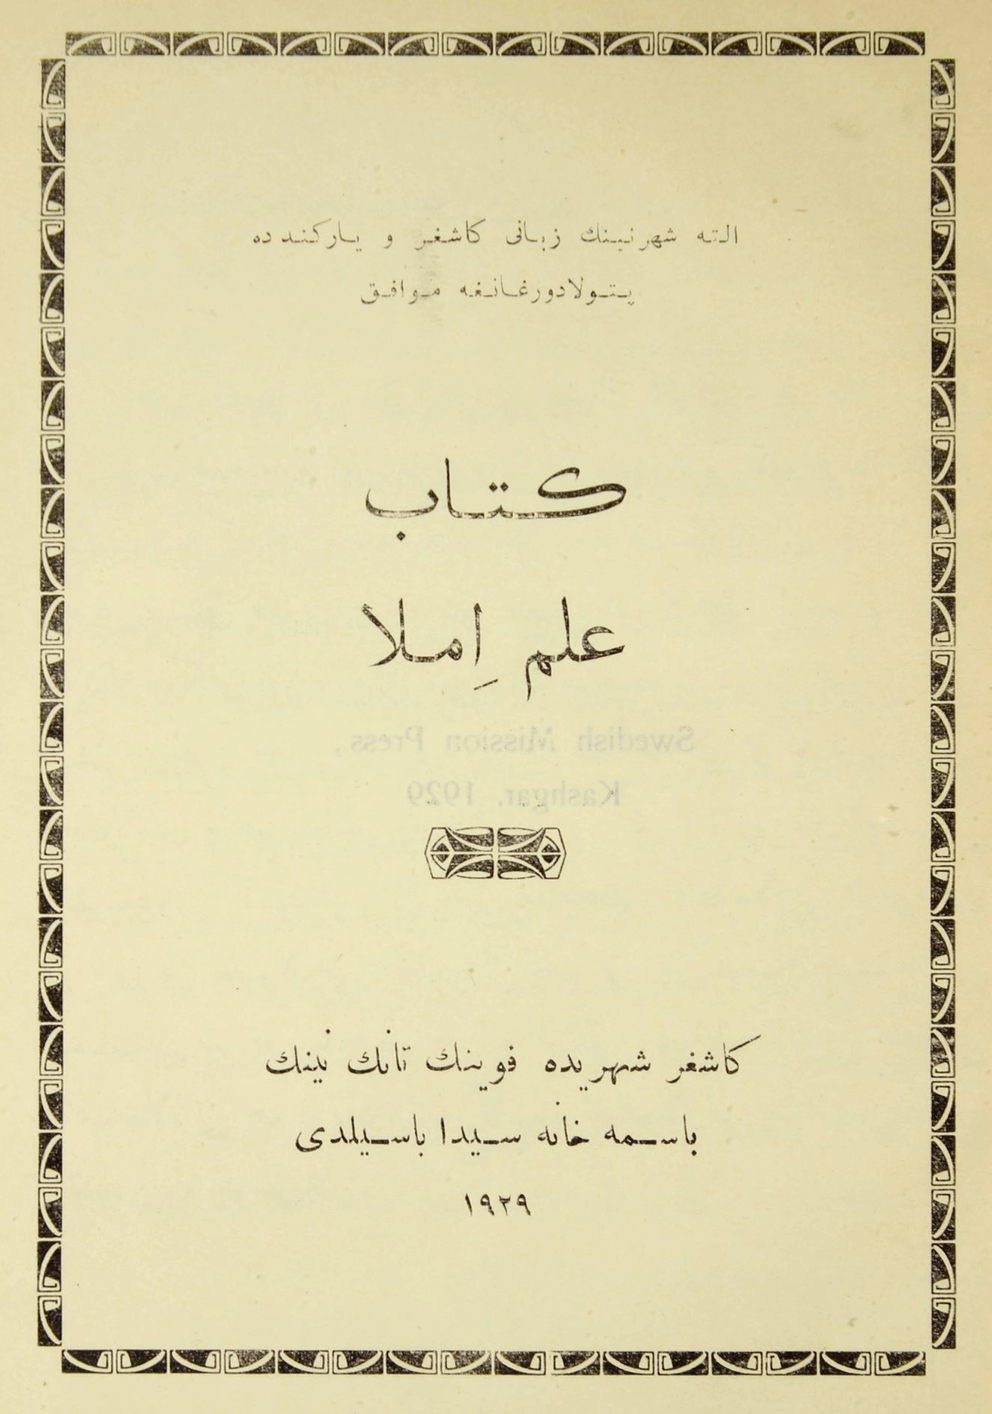 التە شهرنینك زبانی كاشغر و یاركندده
یتولادورغانغه موافق
كتاب
علم اِملا
Swedish Mission Press,
Kashgar. 1929
كاشغر شهریده فوینك تانك نینك
باسمه خانه سیدا باسیلدی
١٩٢٩